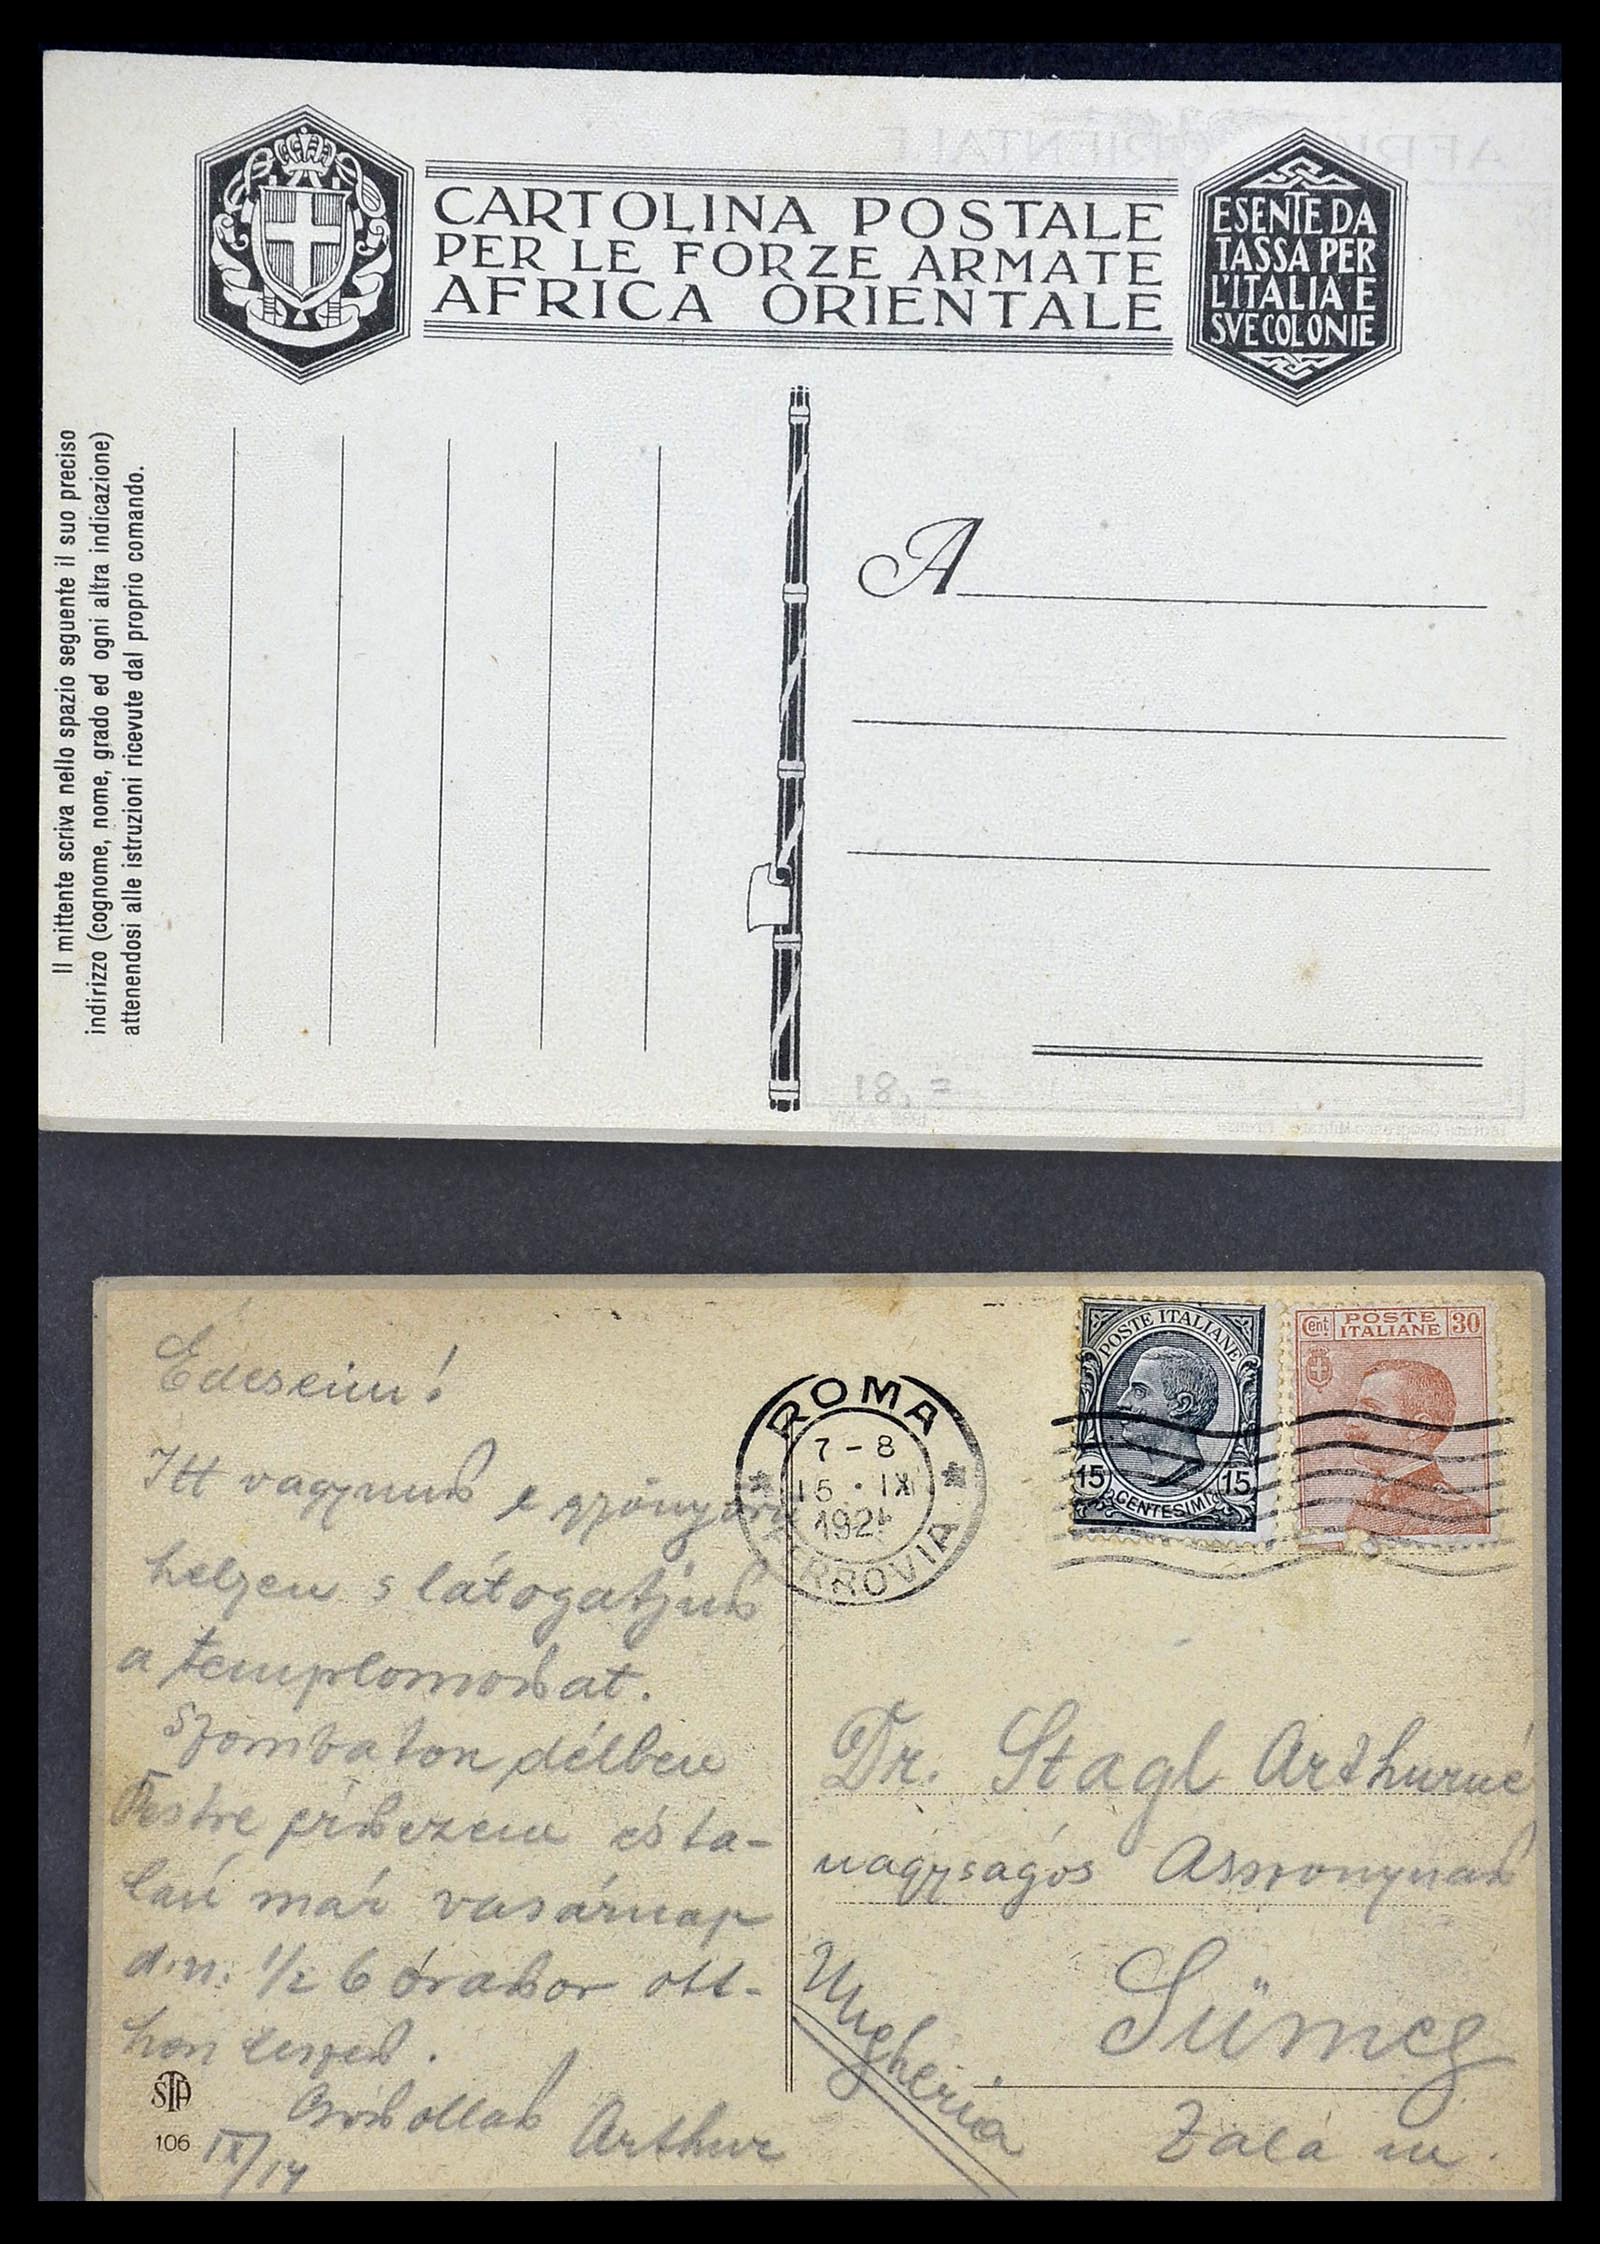 CARTOLINA POSTALE
PER LE FORZE ARMATE
AFRICA ORIENTALE
ESENTE DA
TASSA PER
L'ITALIA E
SVE COLONIE
Il mittente scriva nello spazio seguente il suo preciso
indirizzo (cognome, nome, grado ed ogni altra indicazione)
attenendosi alle istruzioni ricevute dal proprio comando.
A
18,=
POSTE ITALIANE
15 15
CENTESIMI
Cent. POSTE ITALIANE 30
ROMA
7-8
15 · IX
FERROVIA
Édeseim!
Itt vagyunk e gyönyörű
helyen s látogatjuk
a templomokat.
Szombaton délben
Pestre érkezem és ta-
lán már vasárnap
d.n. 1/2 6 órakor ott-
hon leszek.
Csókollak Arthur
IX/14
STA
106
Dr. Stagl Arthurné
nagyságos Asszonynak
Sümeg
Zala m.
Ungheria